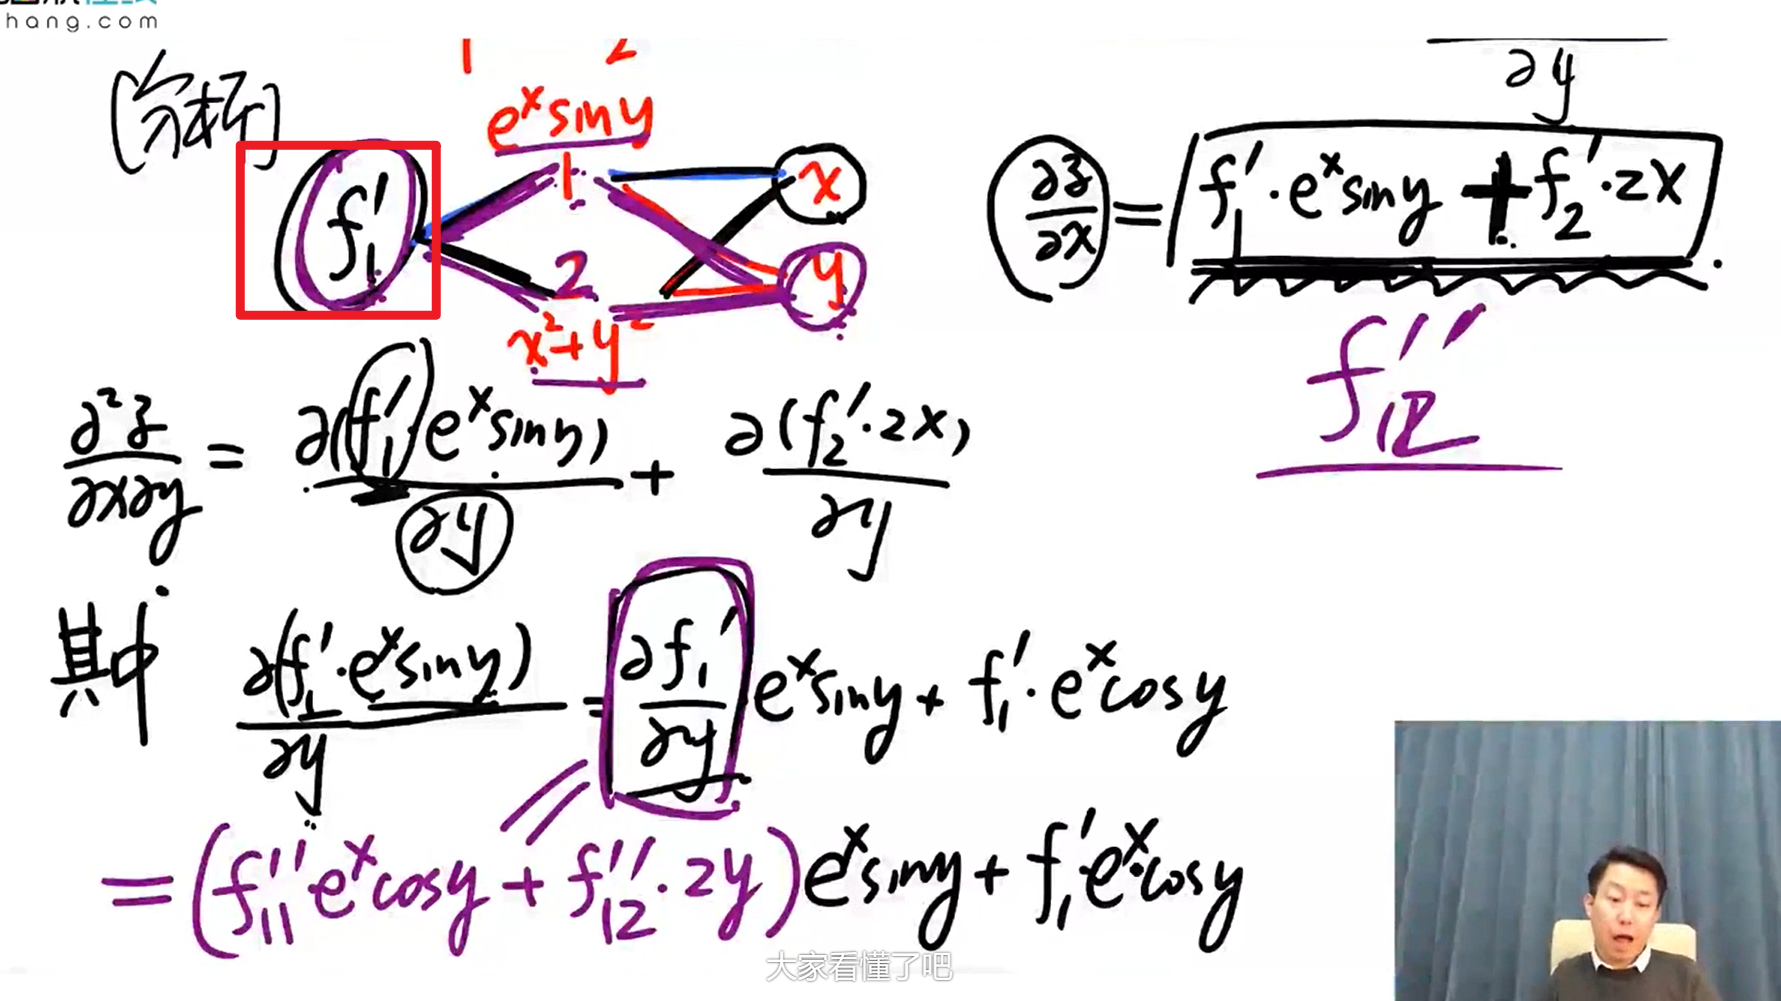 hang.com
1 2
[分析]
e^x sin y
f₁′ 1 x
2 y
x²+y²
∂y
∂z/∂x = f₁′·e^x sin y + f₂′·2x
f₁₂″
∂²z/∂x∂y = ∂(f₁′·e^x sin y)/∂y + ∂(f₂′·2x)/∂y
其中 ∂(f₁′·e^x sin y)/∂y = ∂f₁′/∂y e^x sin y + f₁′·e^x cos y
= (f₁₁″ e^x cos y + f₁₂″·2y) e^x sin y + f₁′ e^x cos y
大家看懂了吧